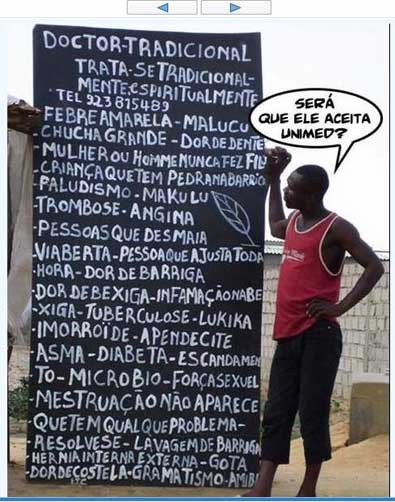 DOCTOR-TRADICIONAL
TRATA-SE TRADICIONAL-
MENTE E SPIRITUALMENTE
TEL 923 815489
FEBRE AMARELA - MALUCU
CHUCHA GRANDE - DOR DE DENTE
MULHER OU HOMEM NUNCA FEZ FIL
- CRIANÇA QUE TEM PEDRA NA BARRIG
PALUDISMO - MAKULU
- TROMBOSE - ANGINA
- PESSOAS QUE DESMAIA
VIA BERTA - PESSOA QUE AJUSTA TODA
- HORA - DOR DE BARRIGA
DOR DE BEXIGA - INFAMAÇÃO NA BE
- XIGA - TUBERCULOSE - LUKIKA
IMORROÏDE - APENDECITE
ASMA - DIABETA - ESCANDAMEN
TO - MICROBIO - FORÇA SEXUEL
- MESTRUAÇÃO NÃO APARECE
- QUE TEM QUALQUE PROBLEMA -
- RESOLVESE - LAVAGEM DE BARRIGA
HERNIA INTERNA EXTERNA - GOTA
- DOR DE COSTELA - GRAMATISMO - AMIB
SERÁ
QUE ELE ACEITA
UNIMED?